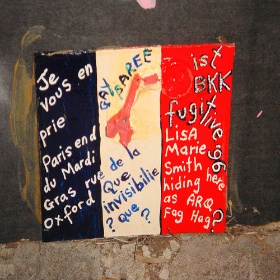 Je
vous en
prie
Paris end
du Mardi
Gras rue de la
Oxford
GAY
PAREE
Que
invisibilie
? que ?
ist
BKK
fugitive '96
LisA
Marie
Smith
hiding here
as ARQ
Fag Hag ?